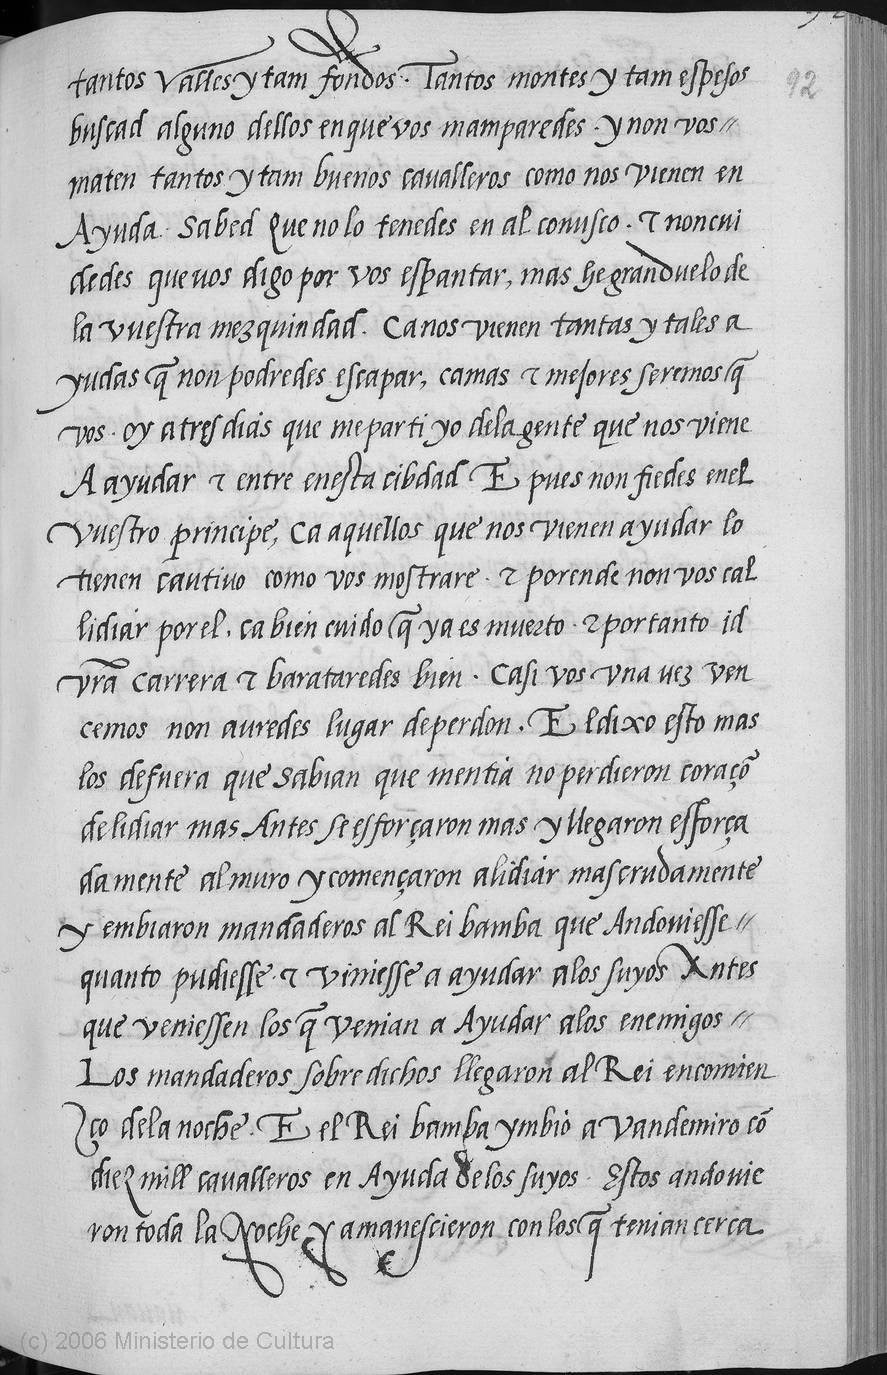 92
tantos valles y tam fondos. Tantos montes y tam espesos
buscad alguno dellos en que vos mamparedes. y non vos//
maten tantos y tam buenos cavalleros como nos vienen en
Ayuda. Sabed Que no lo tenedes en al conusco. τ non cui
dedes que vos digo por vos espantar, mas he gran duelo de
la vuestra mezquindad. Ca nos vienen tantas y tales a
yudas q̃ non podredes escapar, ca mas τ mejores seremos q̃
vos. oy a tres dias que me parti yo de la gente que nos viene
A ayudar τ entre en esta cibdad E pues non fiedes en el
vuestro principe, Ca aquellos que nos vienen ayudar lo
tienen cautivo como vos mostrare. τ porende non vos cal
lidiar por el, ca bien cuido q̃ ya es muerto. τ por tanto id
vr̃a carrera τ barataredes bien. Ca si vos una vez ven
cemos non auredes lugar de perdon. E l dixo esto mas
los de fuera que sabian que mentia no perdieron coraçõ
de lidiar mas Antes se esforçaron mas y llegaron esforça
damente al muro y començaron a lidiar mas crudamente
y embiaron mandaderos al Rei bamba que Andoviesse//
quanto pudiesse τ viniesse a ayudar a los suyos Antes
que veniessen los q̃ venian a Ayudar a los enemigos//
Los mandaderos sobre dichos llegaron al Rei en comien
ço de la noche. E el Rei bamba ymbió a Vandemiro cõ
diez mill cavalleros en Ayuda de los suyos. Estos andovie
ron toda la Noche y amanescieron con los q̃ tenian cerca
(c) 2006 Ministerio de Cultura